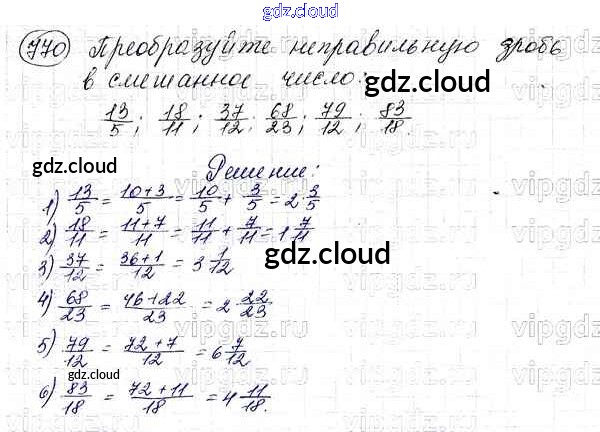 gdz.cloud
770 Преобразуйте неправильную дробь
в смешанное число:
gdz.cloud
13/5; 18/11; 37/12; 68/23; 79/12; 83/18.
gdz.cloud
Решение:
1) 13/5 = (10+3)/5 = 10/5 + 3/5 = 2 3/5
2) 18/11 = (11+7)/11 = 11/11 + 7/11 = 1 7/11
3) 37/12 = (36+1)/12 = 3 1/12
gdz.cloud
4) 68/23 = (46+22)/23 = 2 22/23.
5) 79/12 = (72+7)/12 = 6 7/12
gdz.cloud
6) 83/18 = (72+11)/18 = 4 11/18.
vipgdz.ru